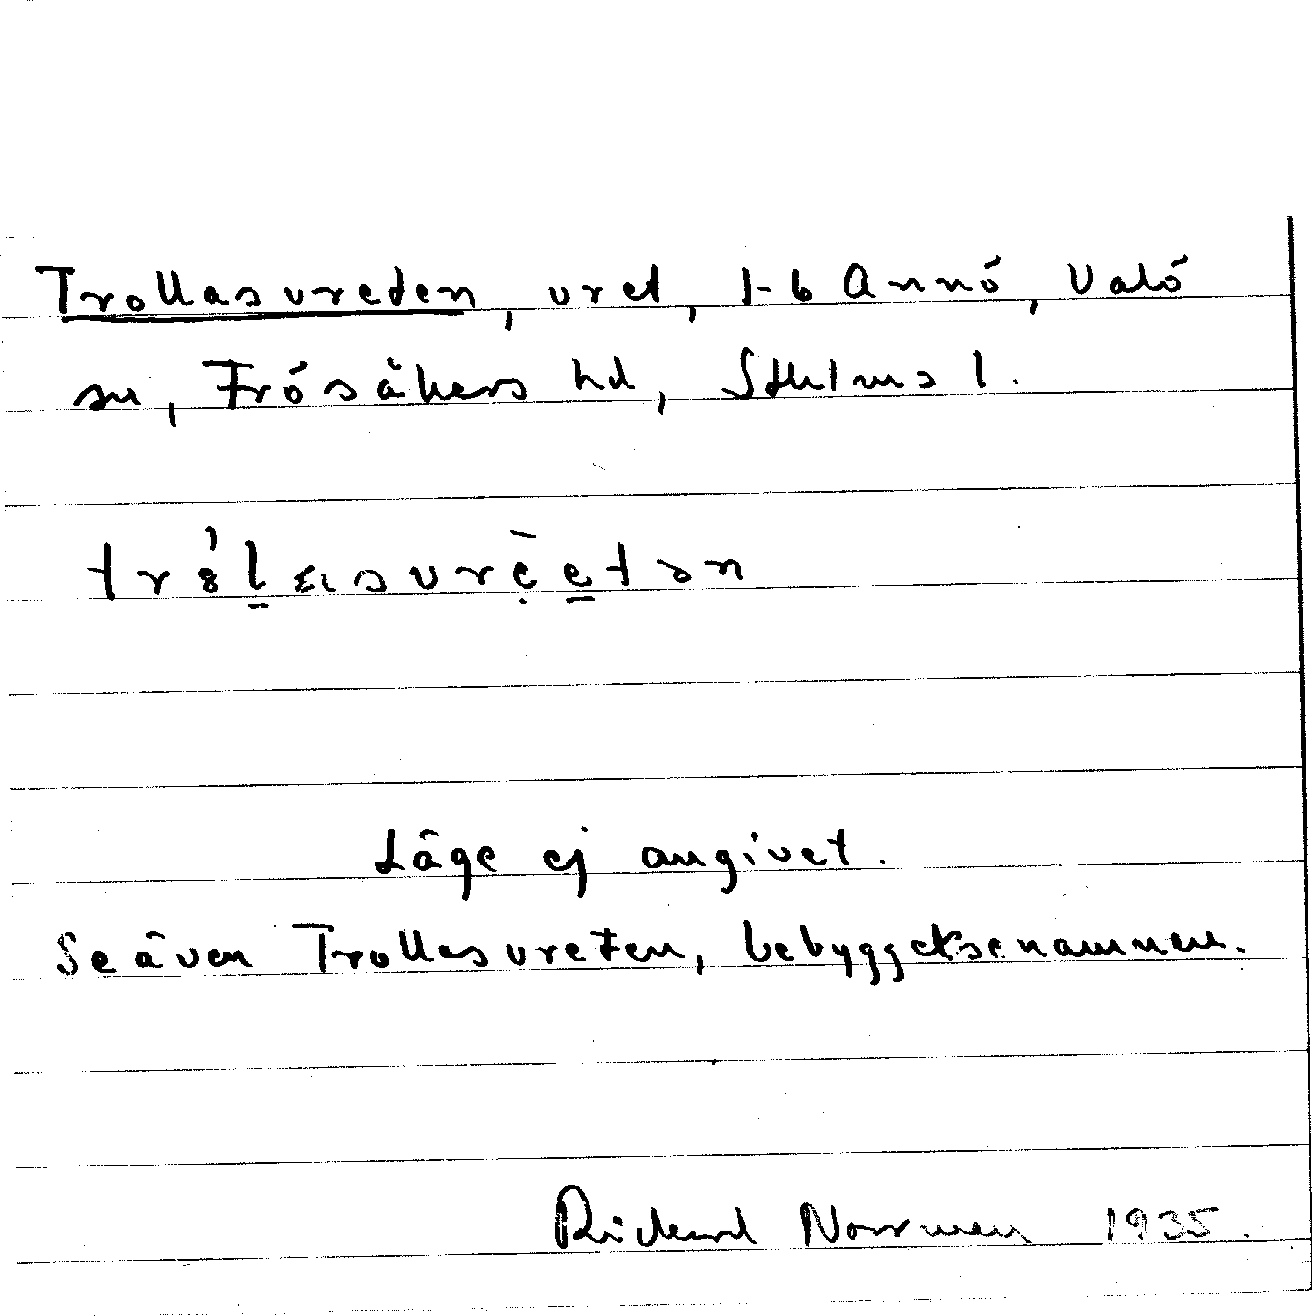 Trollasvreden, vret, 1-6 Annö, Valö
sn, Frösåkers hd, Sthlms l.
Läge ej angivet.
Se även Trollasvreten, bebyggelsenamnen.
Rickard Norrman 1935.